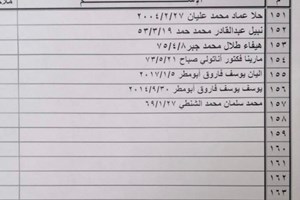 ١٥١ حلا عماد محمد عليان ٢٠٠٤/٢/٢٧
١٥٢ نبيل عبدالقادر محمد حمد ٥٣/٣/١٩
١٥٣ هيفاء طلال محمد جبر ٧٥/٤/٨
١٥٤ مارينا فكتور أناتولي صباح ٧٣/٥/٢١
١٥٥ اليان يوسف فاروق أبومطر ٢٠١٧/١/٥
١٥٦ يوسف يوسف فاروق أبومطر ٢٠١٤/٩/٣٠
١٥٧ محمد سلمان محمد الشنطي ٦٩/١/٢٧
١٥٨
١٥٩
١٦٠
١٦١
١٦٢
١٦٣